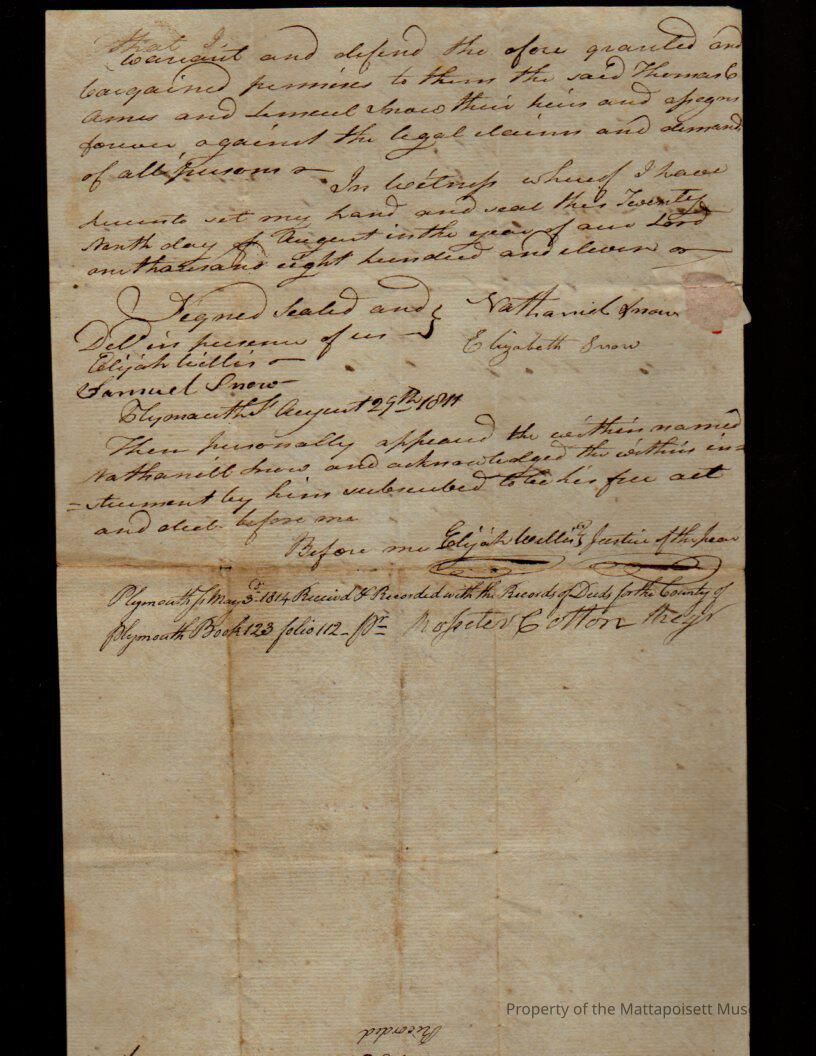 that I
warrant and defend the afore granted and
bargained premises to them the said Thomas
Ames and Lemuel Snow their heirs and assigns
forever against the legal claims and demands
of all persons In witness whereof I have
hereunto set my hand and seal this Twenty
Ninth day of August in the year of our Lord
one thousand eight hundred and eleven
Signed sealed and
Deld in presence of us
Elijah Willis
Samuel Snow
Nathaniel Snow
Elizabeth Snow
Plymouth Ss August 29th 1811
Then personally appeared the within named
Nathaniel Snow and acknowledged the within in=
=strument by him subscribed to be his free act
and deed before me
Before me Elijah Willis Justice of the Peace
Plymouth Ss May 3d 1814 Received & Recorded with the Records of Deeds for the County of
Plymouth Book 123 folio 112 Pr Rosseter Cotton Regr
Recorded
Property of the Mattapoisett Mus